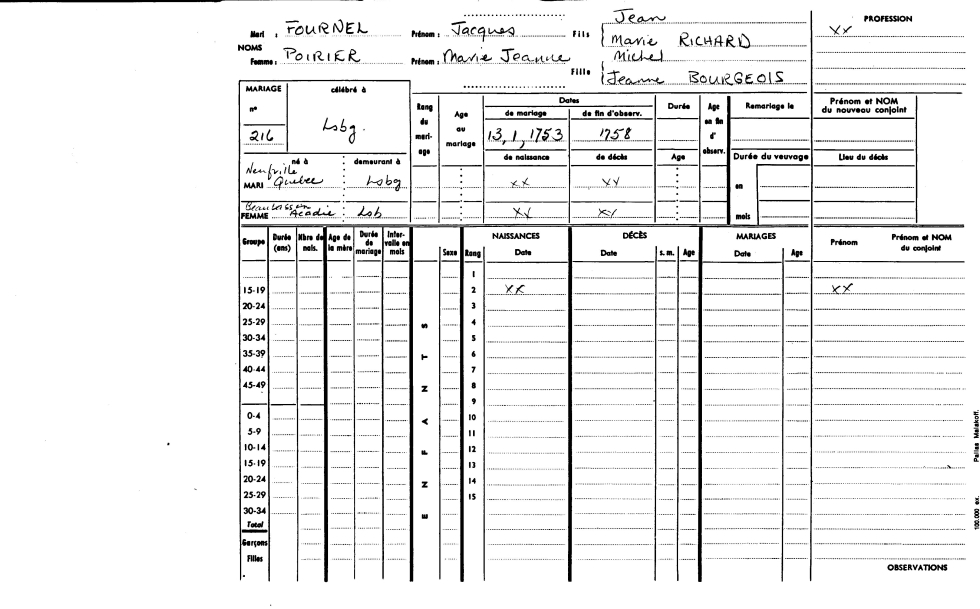 Jean
PROFESSION
Mari : FOURNEL Prénom : Jacques Fils Marie RICHARD XX
NOMS
Femme : POIRIER Prénom : Marie Jeanne Fille Michel
Jeanne BOURGEOIS
MARIAGE célébré à
n° Lsbg.
216
Rang du mari- age
Age au mariage
Dates
de mariage de fin d'observ.
13, 1, 1753 1758
de naissance de décès
Durée
Age
Age en fin d' observ.
Remariage le
Prénom et NOM du nouveau conjoint
Durée du veuvage
Lieu du décès
né à demeurant à
Neufville
MARI Quebec Lsbg XX XX en
Beaubassin
FEMME Acadie Lsb XX XX mois
Groupe Durée (ans) Nbre de nais. Age de la mère Durée de mariage Inter- valle en mois
Sexe Rang
NAISSANCES
Date
DÉCÈS
Date s. m. Age
MARIAGES
Date Age
Prénom Prénom et NOM du conjoint
1
15-19 2 XX XX
20-24 3
25-29 S 4
30-34 5
35-39 T 6
40-44 7
45-49 N 8
9
0-4 A 10
5-9 11
10-14 F 12
15-19 13
20-24 N 14
25-29 15
30-34 E
Total
Garçons
Filles
OBSERVATIONS
100.000 ex. Pallas Malakoff.